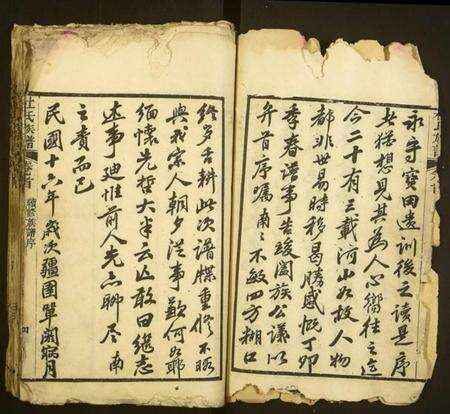 永守寶田遺訓後之讀是序
者猶想見其為人心嚮往之迨
今二十有三載河山如故人物
都非世易時移曷勝感慨丁卯
季春譜事告竣闔族公議以
弁首序囑南〻不敏四方糊口
終多舌耕此次譜牒重修不暇
與我宗人朝夕從事歉何如耶
緬懷先哲大半云亡敢曰繼志
述事迪惟前人光亦聊尽南
之責而已
民國十六年歲次疆圉單閼寎月
杜氏族譜 卷首 續修族譜序 四